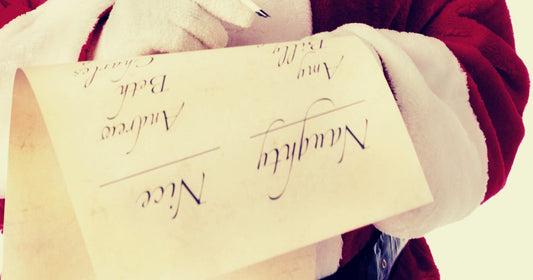 Naughty Nice
Amy Andrew
Billy Beth
Charles